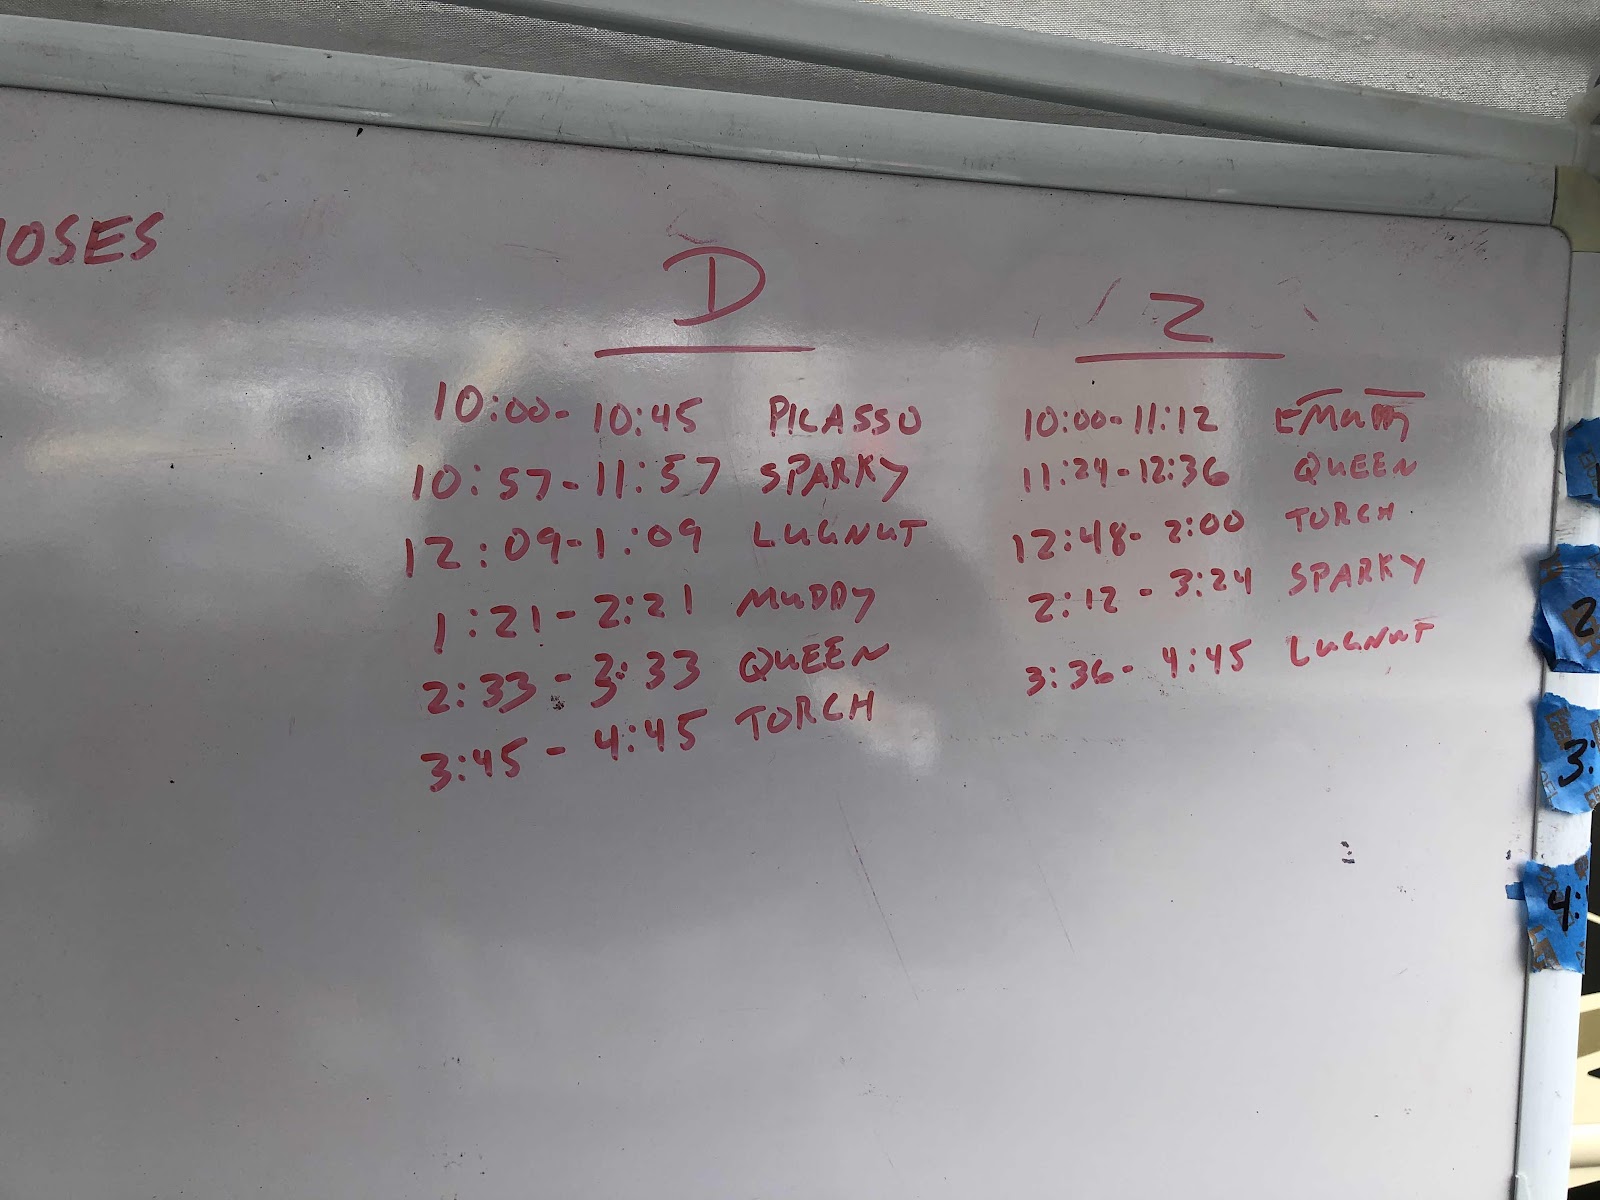 OSES
D
10:00-10:45 PICASSO
10:57-11:57 SPARKY
12:09-1:09 LUGNUT
1:21-2:21 MUDDY
2:33-3:33 QUEEN
3:45-4:45 TORCH
Z
10:00-11:12
11:24-12:36 QUEEN
12:48-2:00 TORCH
2:12-3:24 SPARKY
3:36-4:45 LUGNUT
2
3:
4: